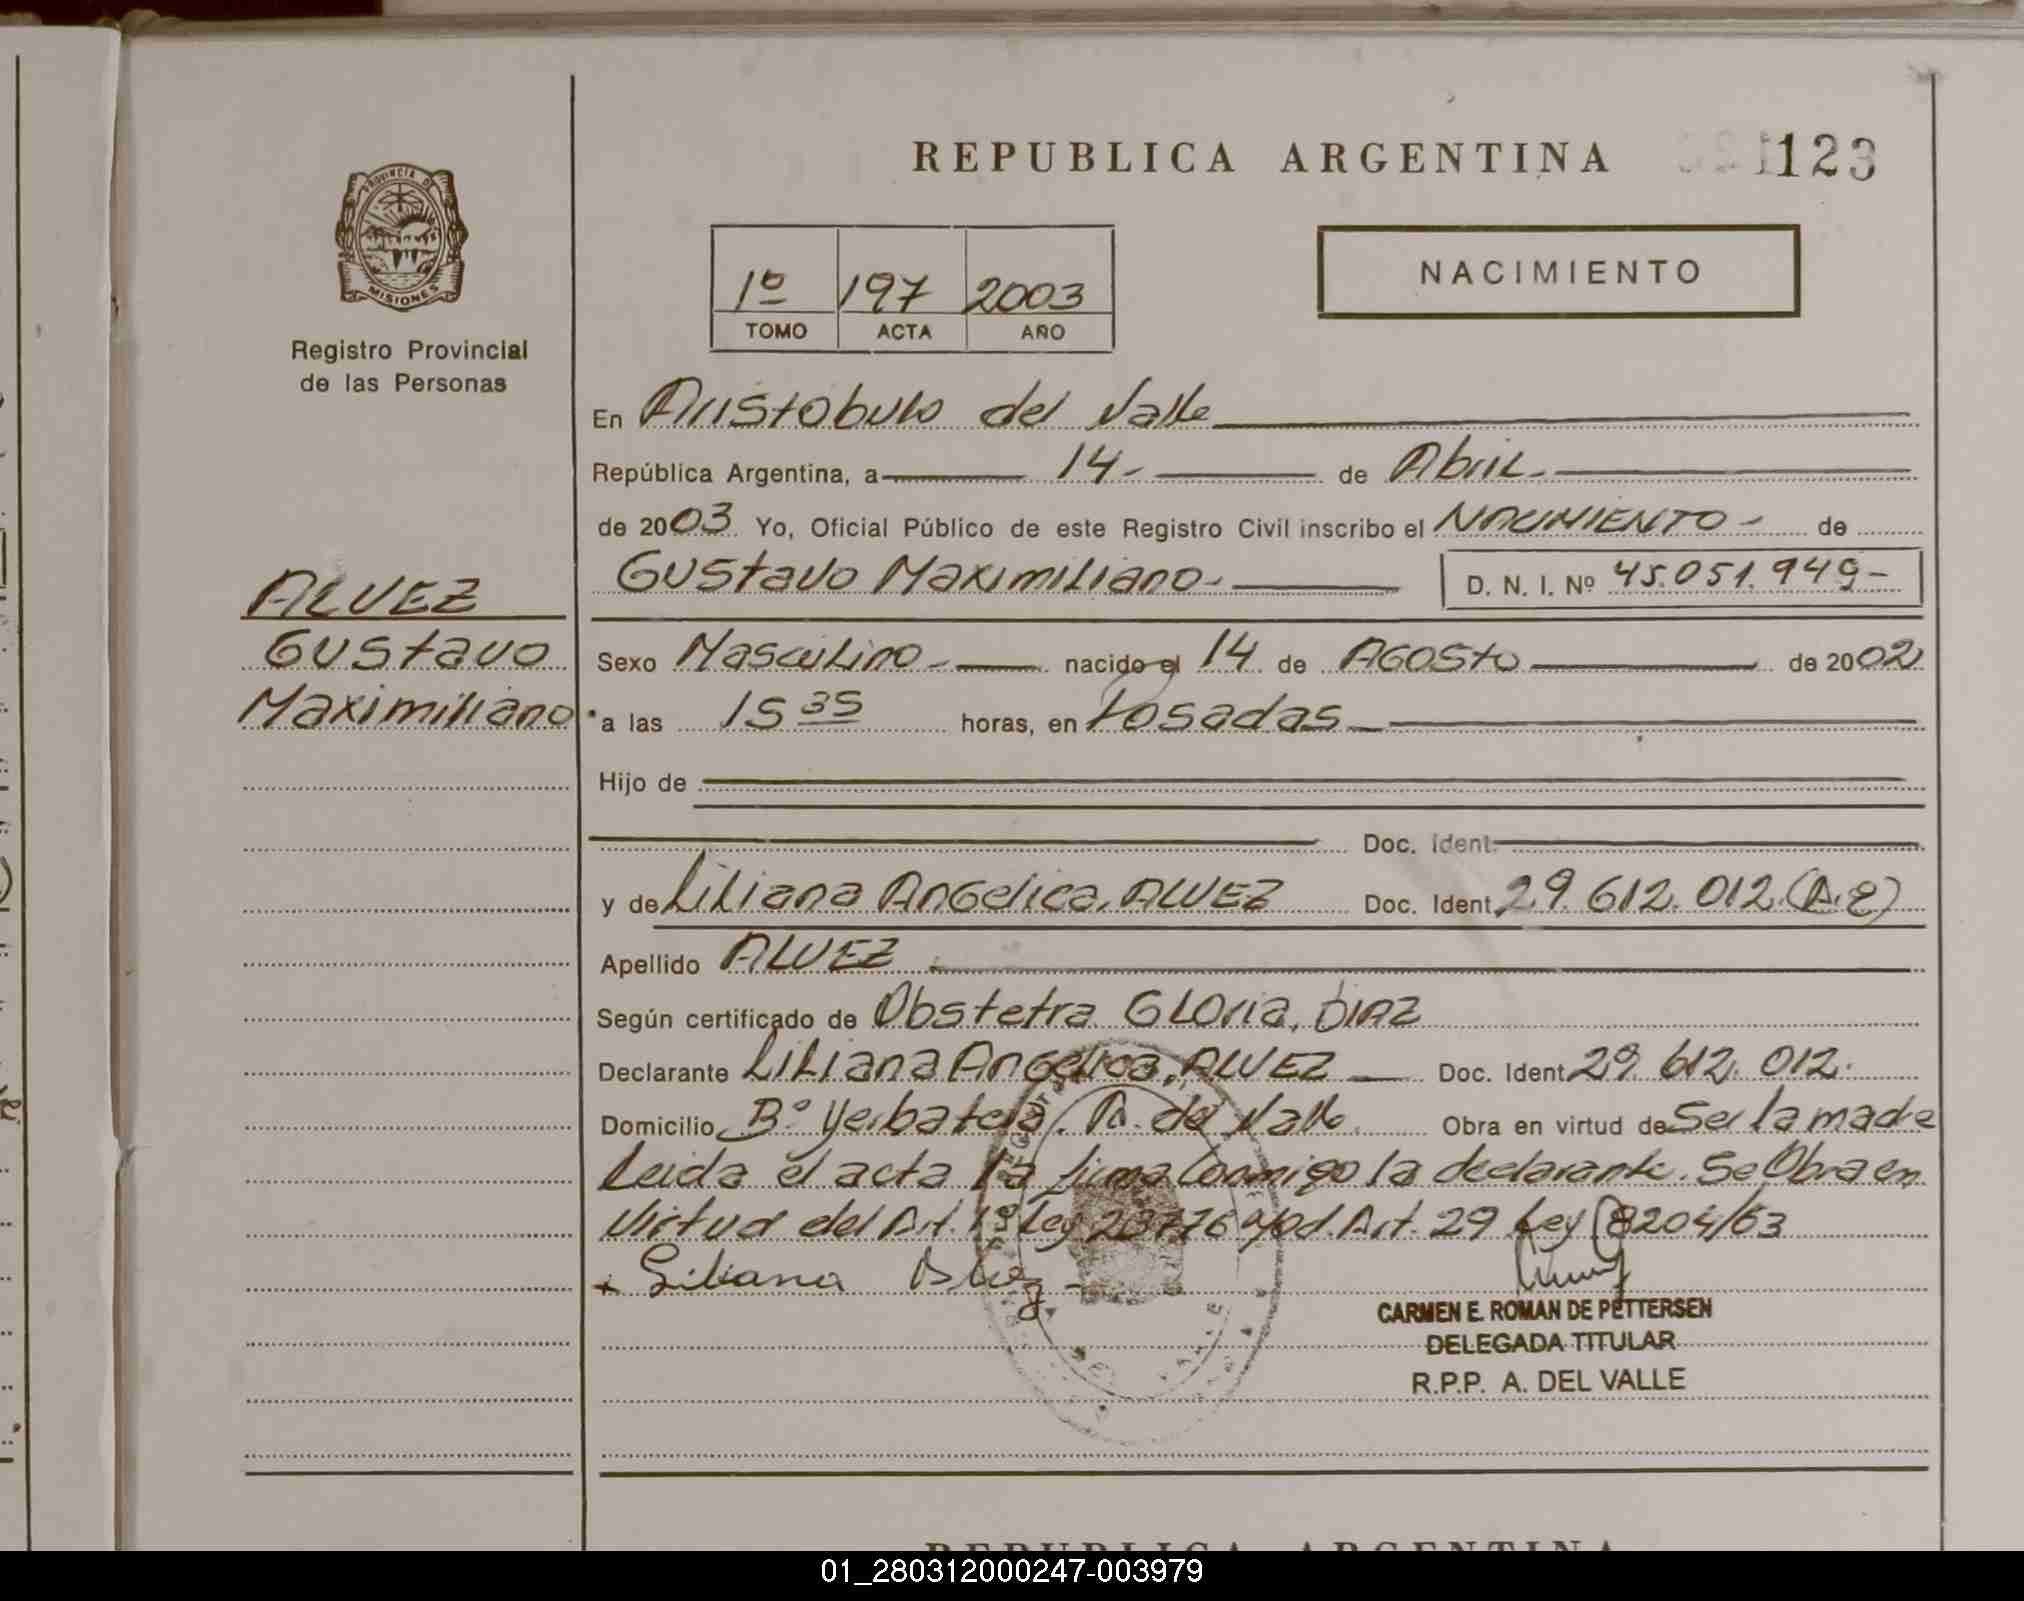 REPUBLICA ARGENTINA 123
PROVINCIA DE
MISIONES
Registro Provincial
de las Personas
NACIMIENTO
1º 197 2003
TOMO ACTA AÑO
En Aristobulo del Valle
República Argentina, a 14- de Abril-
de 2003 Yo, Oficial Público de este Registro Civil inscribo el NACIMIENTO - de
Gustavo Maximiliano- D. N. I. Nº 45.051.949-
ALVEZ
Gustavo
Maximiliano
Sexo Masculino- nacido el 14 de AGOSTO de 2002
a las 15 35 horas, en Posadas
Hijo de
Doc. Ident.
y de Liliana Angelica, ALVEZ Doc. Ident. 29.612.012.(A.E)
Apellido ALVEZ
Según certificado de Obstetra Gloria, DIAZ
Declarante Liliana Angelica, ALVEZ Doc. Ident. 29.612.012.
Domicilio Bº Yerbatera. A. del Valle. Obra en virtud de Ser la madre
Leida el acta la firma Conmigo la declarante. Se Obra en
Virtud del Art. 1º Ley 23776 Mod. Art. 29 Ley 8204/63
Liliana Alvez -
CARMEN E. ROMAN DE PETTERSEN
DELEGADA TITULAR
R.P.P. A. DEL VALLE
REPUBLICA ARGENTINA
01_280312000247-003979